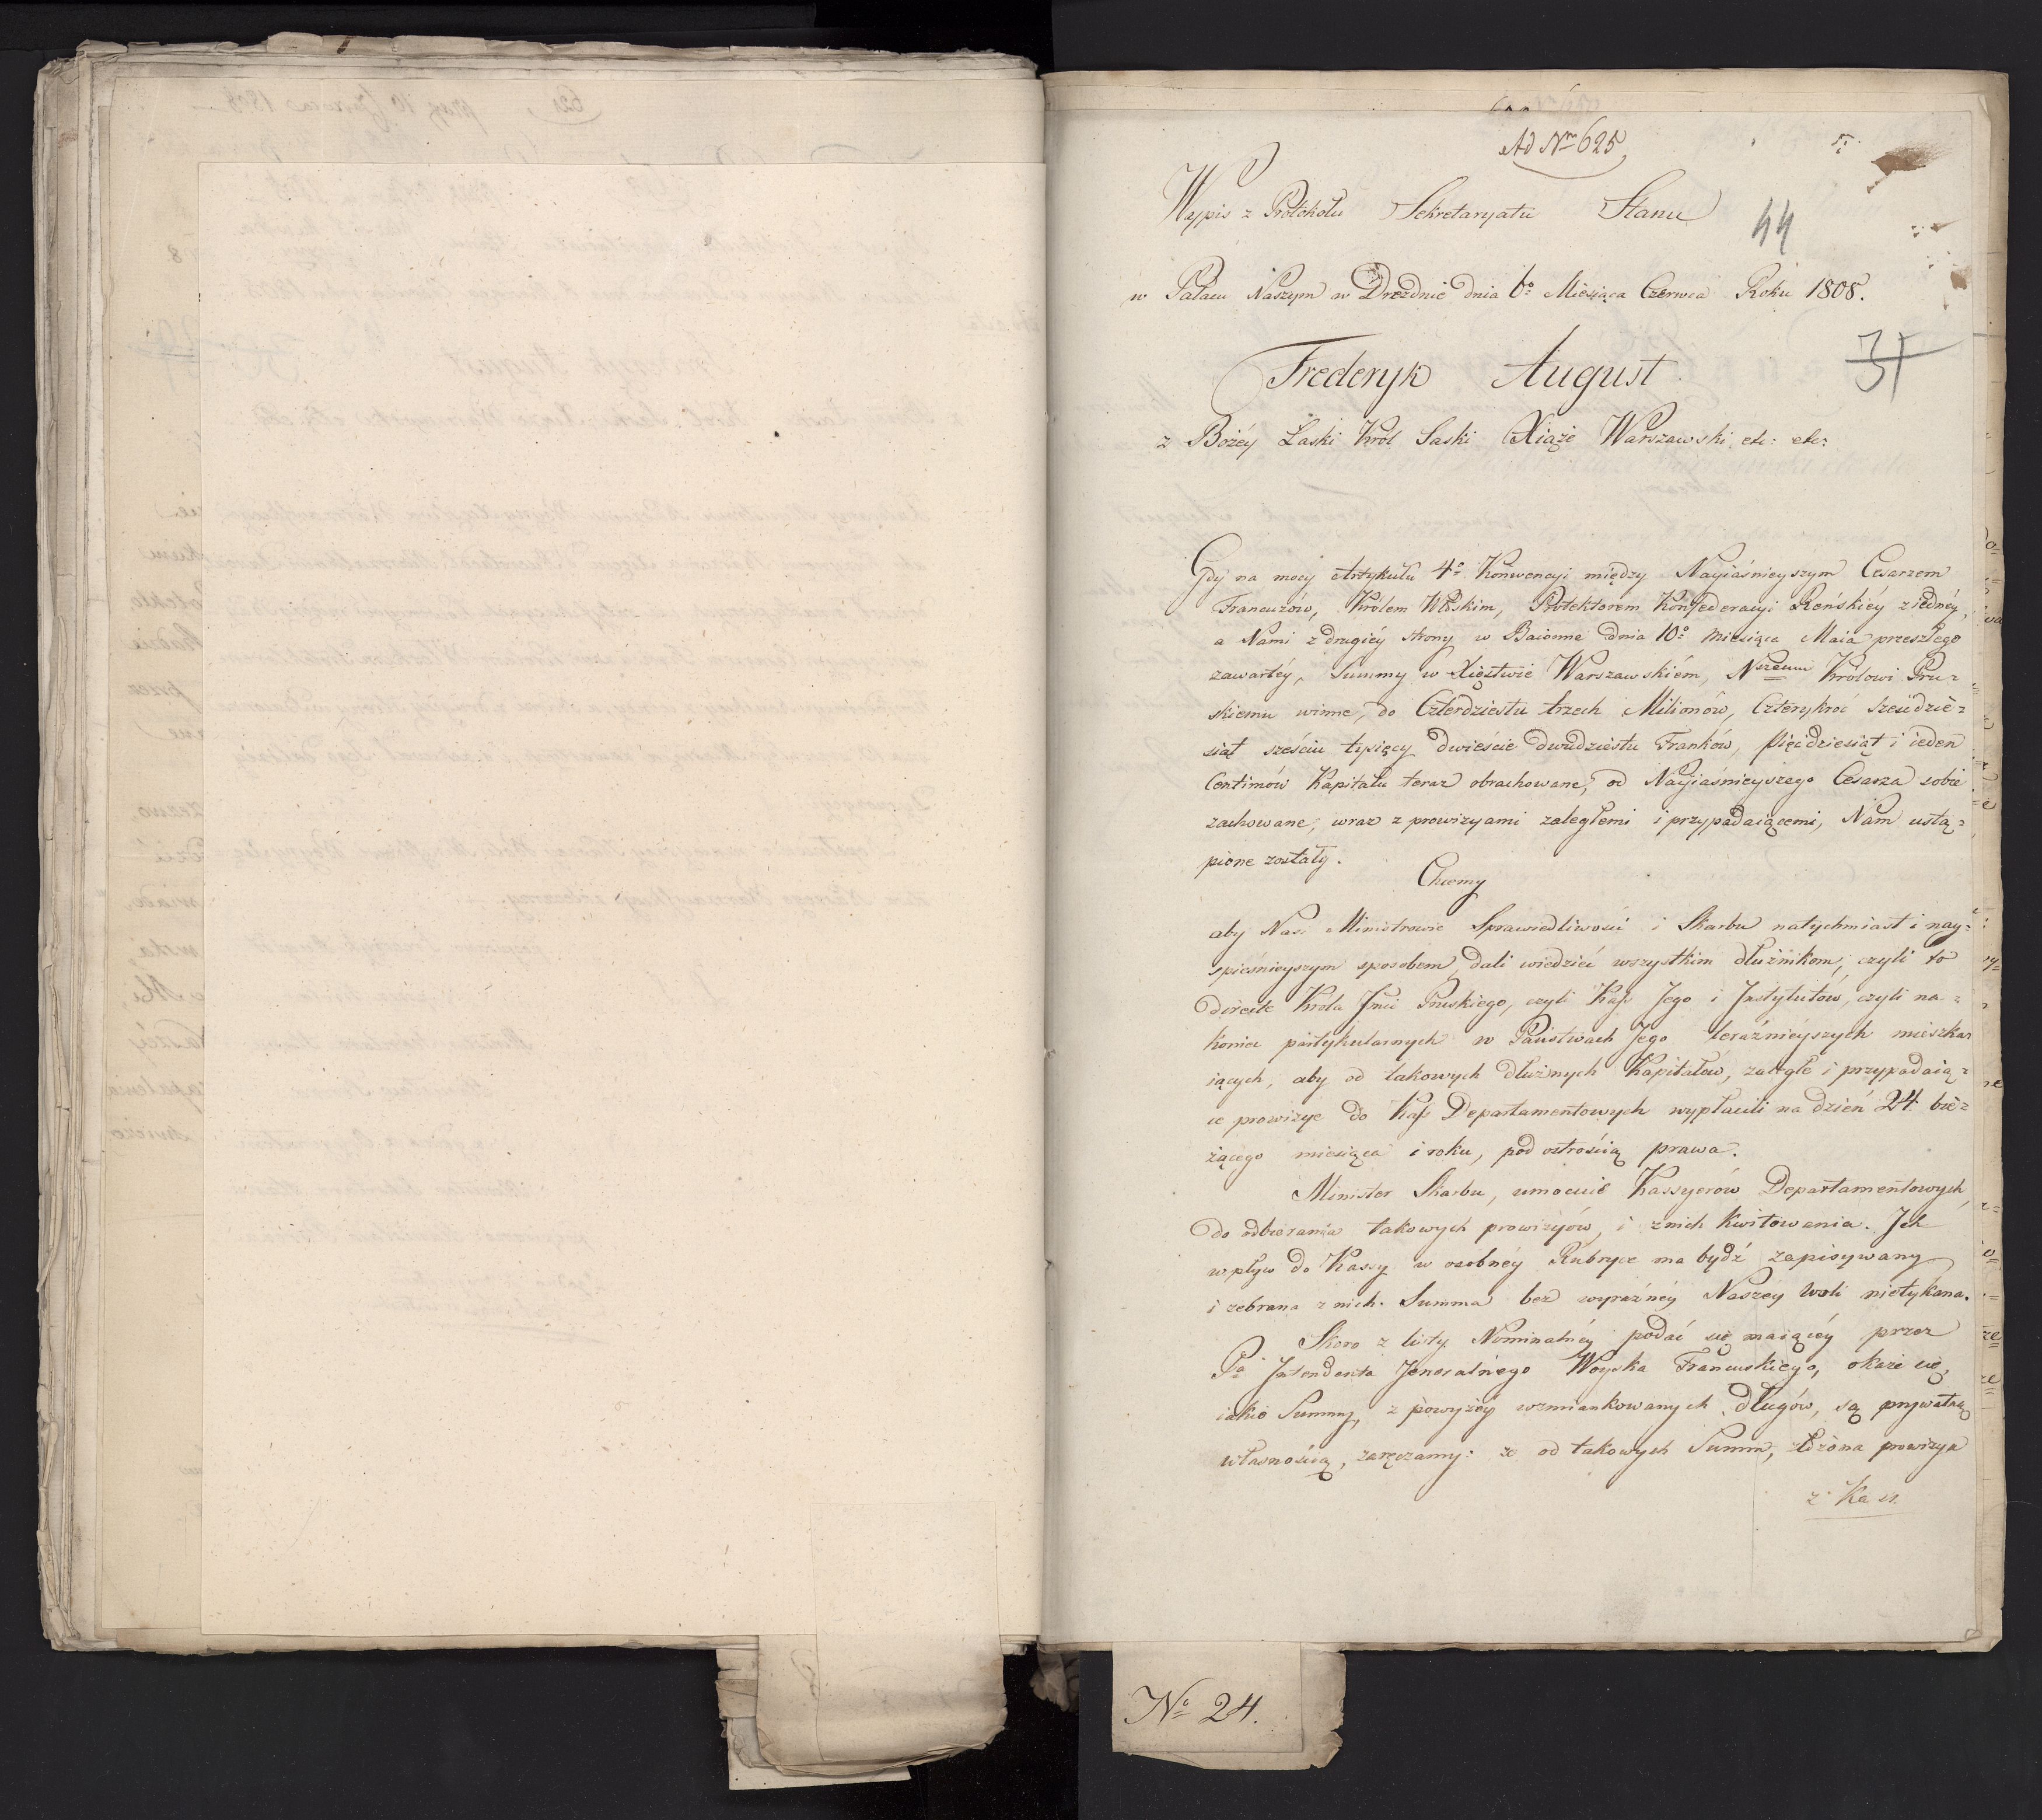 Ad Nro 625
Wypis z Protokołu Sekretaryatu Stanu
44
w Pałacu Naszym w Dreźdnie dnia 6o Miesiąca Czerwca Roku 1808.
31
Frederyk August
z Bożéy Łaski Król Saski Xiąże Warszawski etc: etc:
Gdy na mocy Artykułu 4o Konwencyi między Nayiaśnieyszym Cesarzem
Francuzów, Królem Włoskim, Protektorem Konfederacyi Reńskiéy z iednéy,
a Nami z drugiéy strony w Baionne dnia 10o miesiąca Maia przeszłego
zawartéy, Summy w Xięstwie Warszawskiém, Nszemu Królowi Pru=
skiemu winne, do Czterdziestu trzech Milionów, Czterykroć Sześdzie=
siąt sześciu tysięcy dwieście dwudziestu Franków, Pięćdziesiąt i ieden
Centimów Kapitału teraz obrachowane, od Nayiaśnieyszego Cesarza sobie
zachowane, wraz z prowizyami zaległemi i przypadaiącemi, Nam ustą=
pione zostały.
Chcemy
aby Nasi Ministrowie Sprawiedliwości i Skarbu natychmiast i nay=
spieśnieyszym sposobem dali wiedzieć wszystkim dłużnikom, czyli to
directe Króla Jmci Pruskiego, czyli Kass Jego i Jnstytutów, czyli na=
koniec partykularnych w Państwach Jego teraźnieyszych mieszka=
iących, aby od takowych dłużnych Kapitałów, zaległe i przypadaią=
ce prowizye do Kass Departamentowych wypłacili na dzień 24 bie=
żącego miesiąca i roku, pod ostrością prawa.
Minister Skarbu, umocuie Kassyerów Departamentowych,
do odbierania takowych prowizyów, i z nich kwitowania. Jch
wpływ do Kassy w osobnéy Rubryce ma bydź zapisywany
i zebrana z nich Summa bez wyraźnéy Naszéy woli nietykana.
Skoro z listy Nominalnéy podać się maiącéy przez
Pa Jntendenta Jeneralnego Woyska Francuskiego, okaże się,
iakie Summy, z powyżéy wzmiankowanych długów, są prywatną
własnością, zaręczamy: że od takowych Summ, złożona prowizya
z Kass.
No 24.